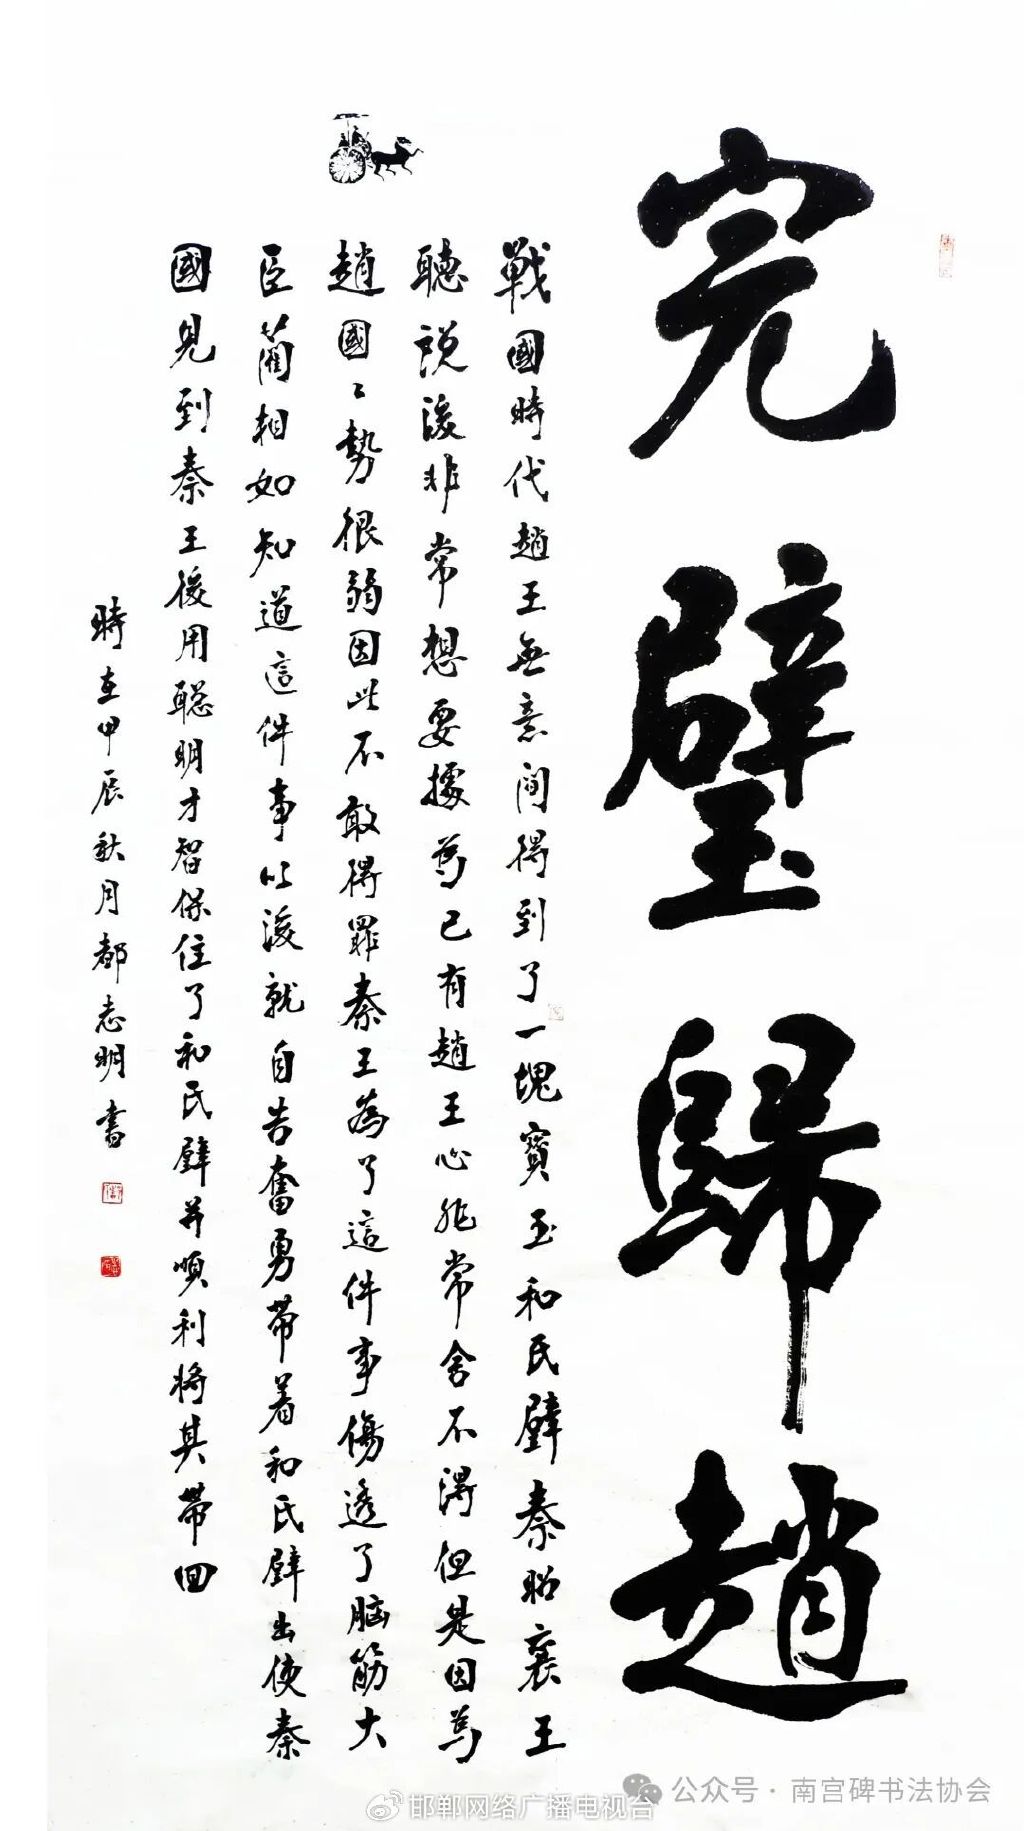 完璧歸趙
戰國時代趙王無意間得到了一塊寶玉和氏璧秦昭襄王
聽説後非常想要據為已有趙王心非常舍不得但是因為
趙國〻勢很弱因此不敢得罪秦王為了這件事傷透了脑筋大
臣藺相如知道這件事以後就自告奮勇帶着和氏璧出使秦
國見到秦王後用聪明才智保住了和氏璧并順利將其帶回
時在甲辰秋月都志明書
邯郸网络广播电视台
公众号·南宫碑书法协会